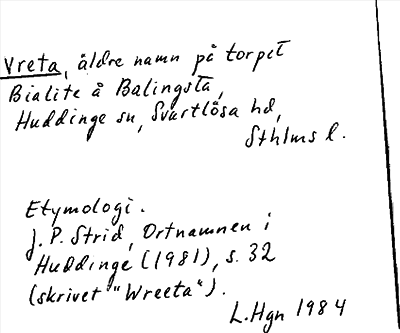 Vreta, äldre namn på torpet
Bialite å Balingsta,
Huddinge sn, Svartlösa hd,
Sthlms l.
Etymologi.
J. P. Strid, Ortnamnen i
Huddinge (1981), s. 32
(skrivet "Wreeta").
L. Hgn 1984